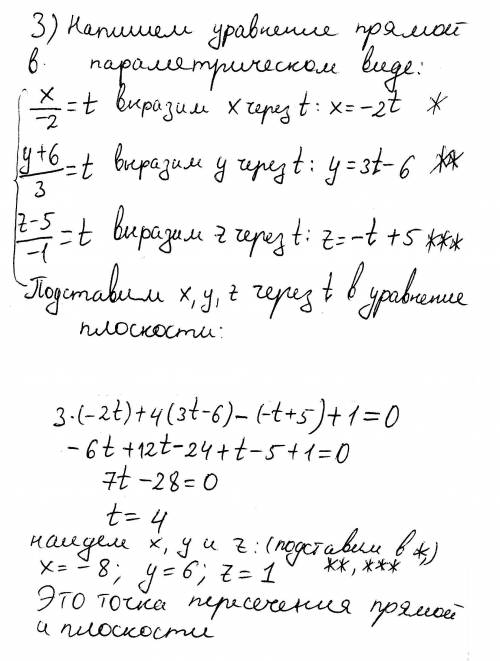 3) Напишем уравнение прямой
в параметрическом виде:
x/-2 = t выразим x через t: x = -2t *
y+6/3 = t выразим y через t: y = 3t - 6 **
z-5/-1 = t выразим z через t: z = -t + 5 ***
Подставим x, y, z через t в уравнение
плоскости:
3·(-2t)+4(3t-6)-(-t+5)+1=0
-6t+12t-24+t-5+1=0
7t-28=0
t=4
найдем x, y и z: (подставим в *,)
**, ***
x=-8; y=6; z=1
Это точка пересечения прямой
и плоскости